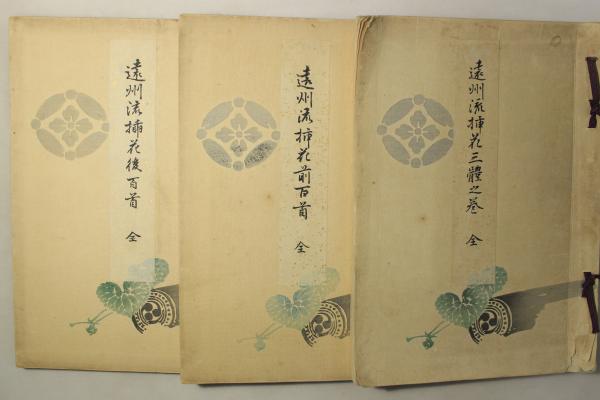 遠州流挿花三體之巻 全
遠州流挿花前百首 全
遠州流挿花後百首 全